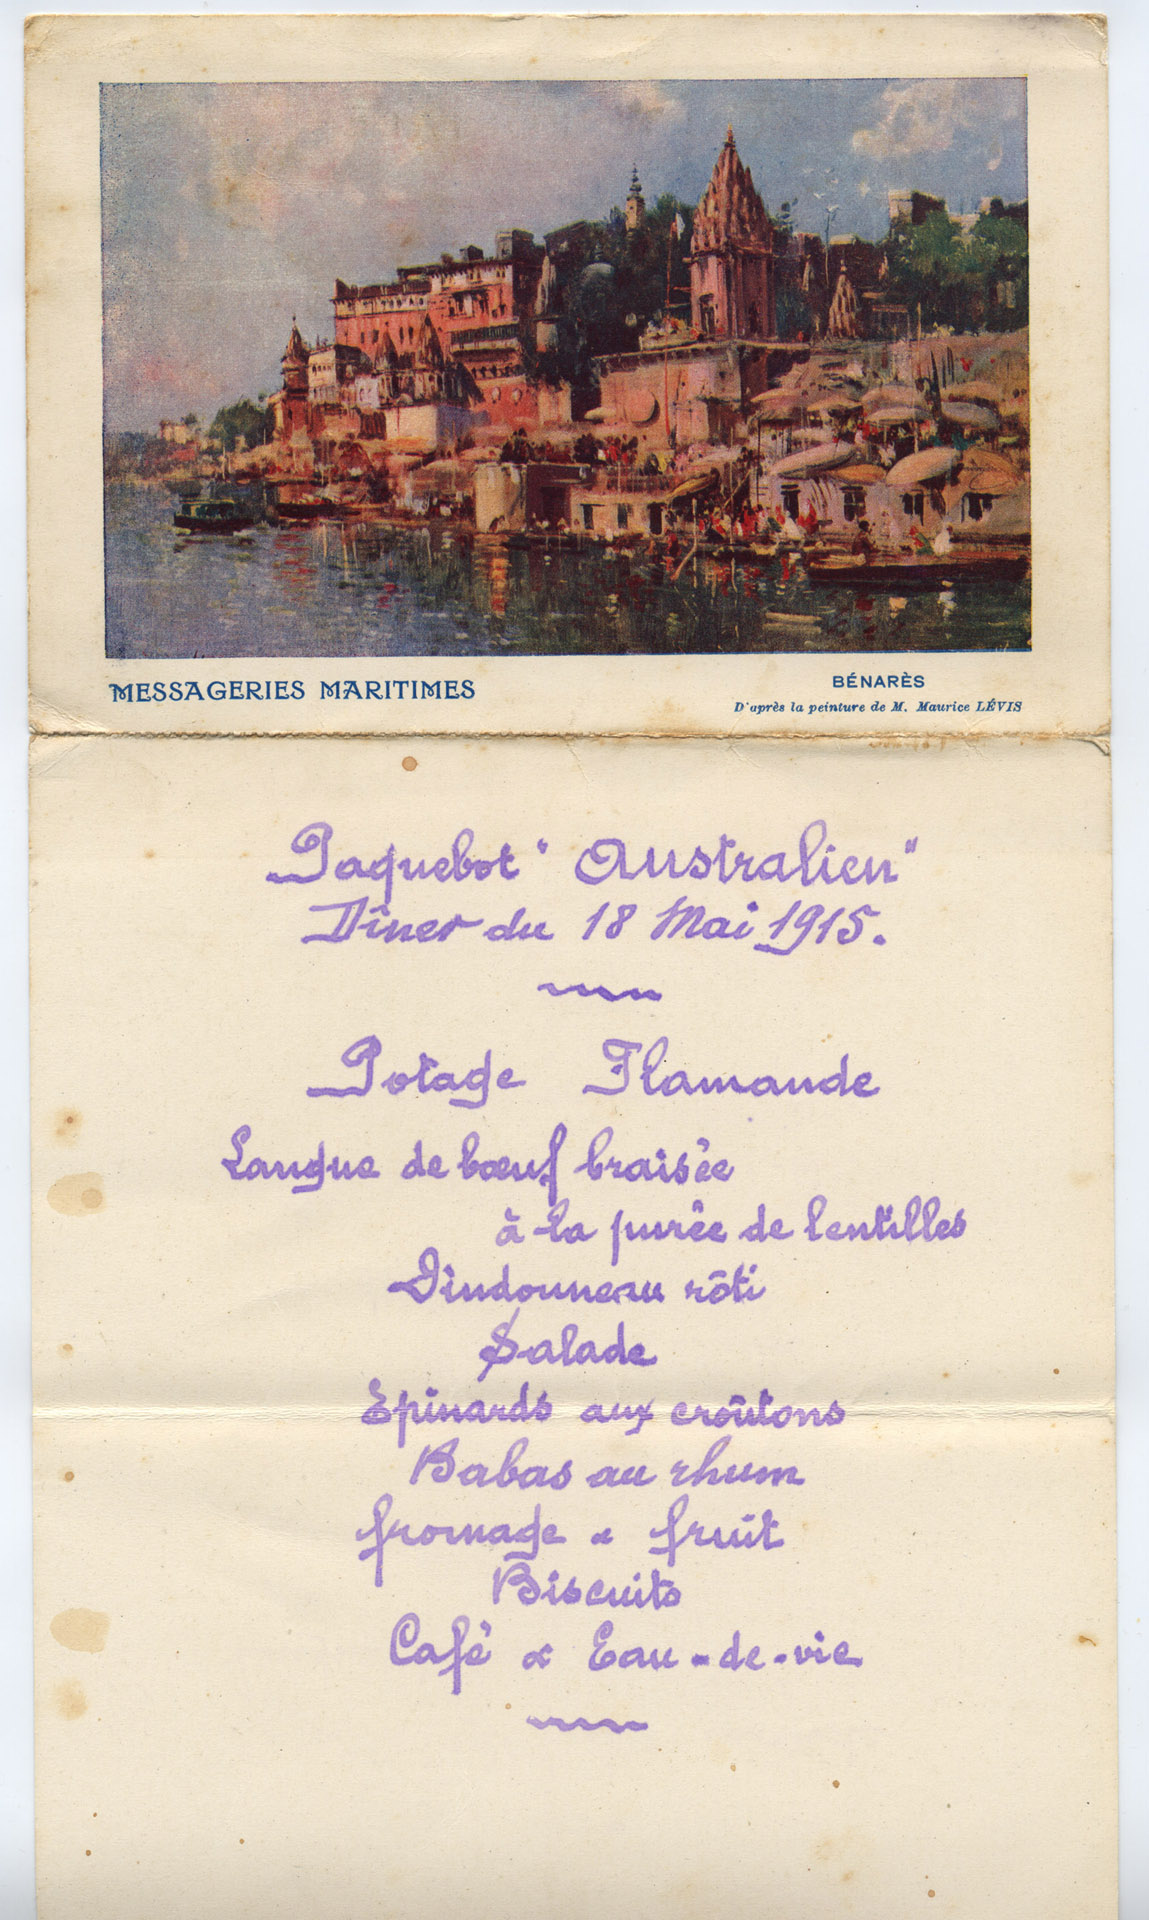 MESSAGERIES MARITIMES
BÉNARÈS
D'après la peinture de M. Maurice LÉVIS
Paquebot "Australien"
Dîner du 18 Mai 1915.
Potage Flamande
Langue de bœuf braisée
à la purée de lentilles
Dindonneau rôti
Salade
Epinards aux croûtons
Babas au rhum
fromage & fruit
Biscuits
Café & Eau-de-vie